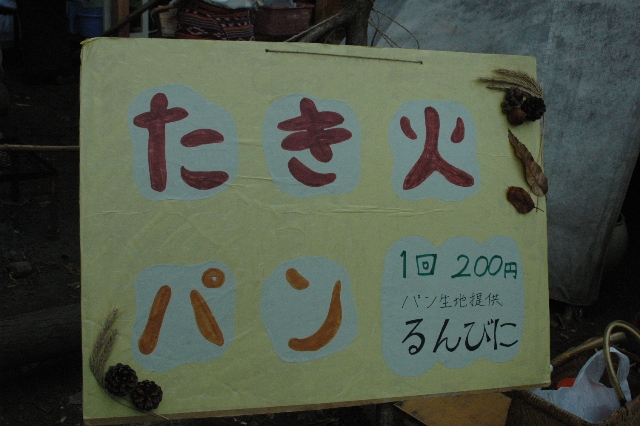 たき火
パン
1回 200円
パン生地提供
るんびに